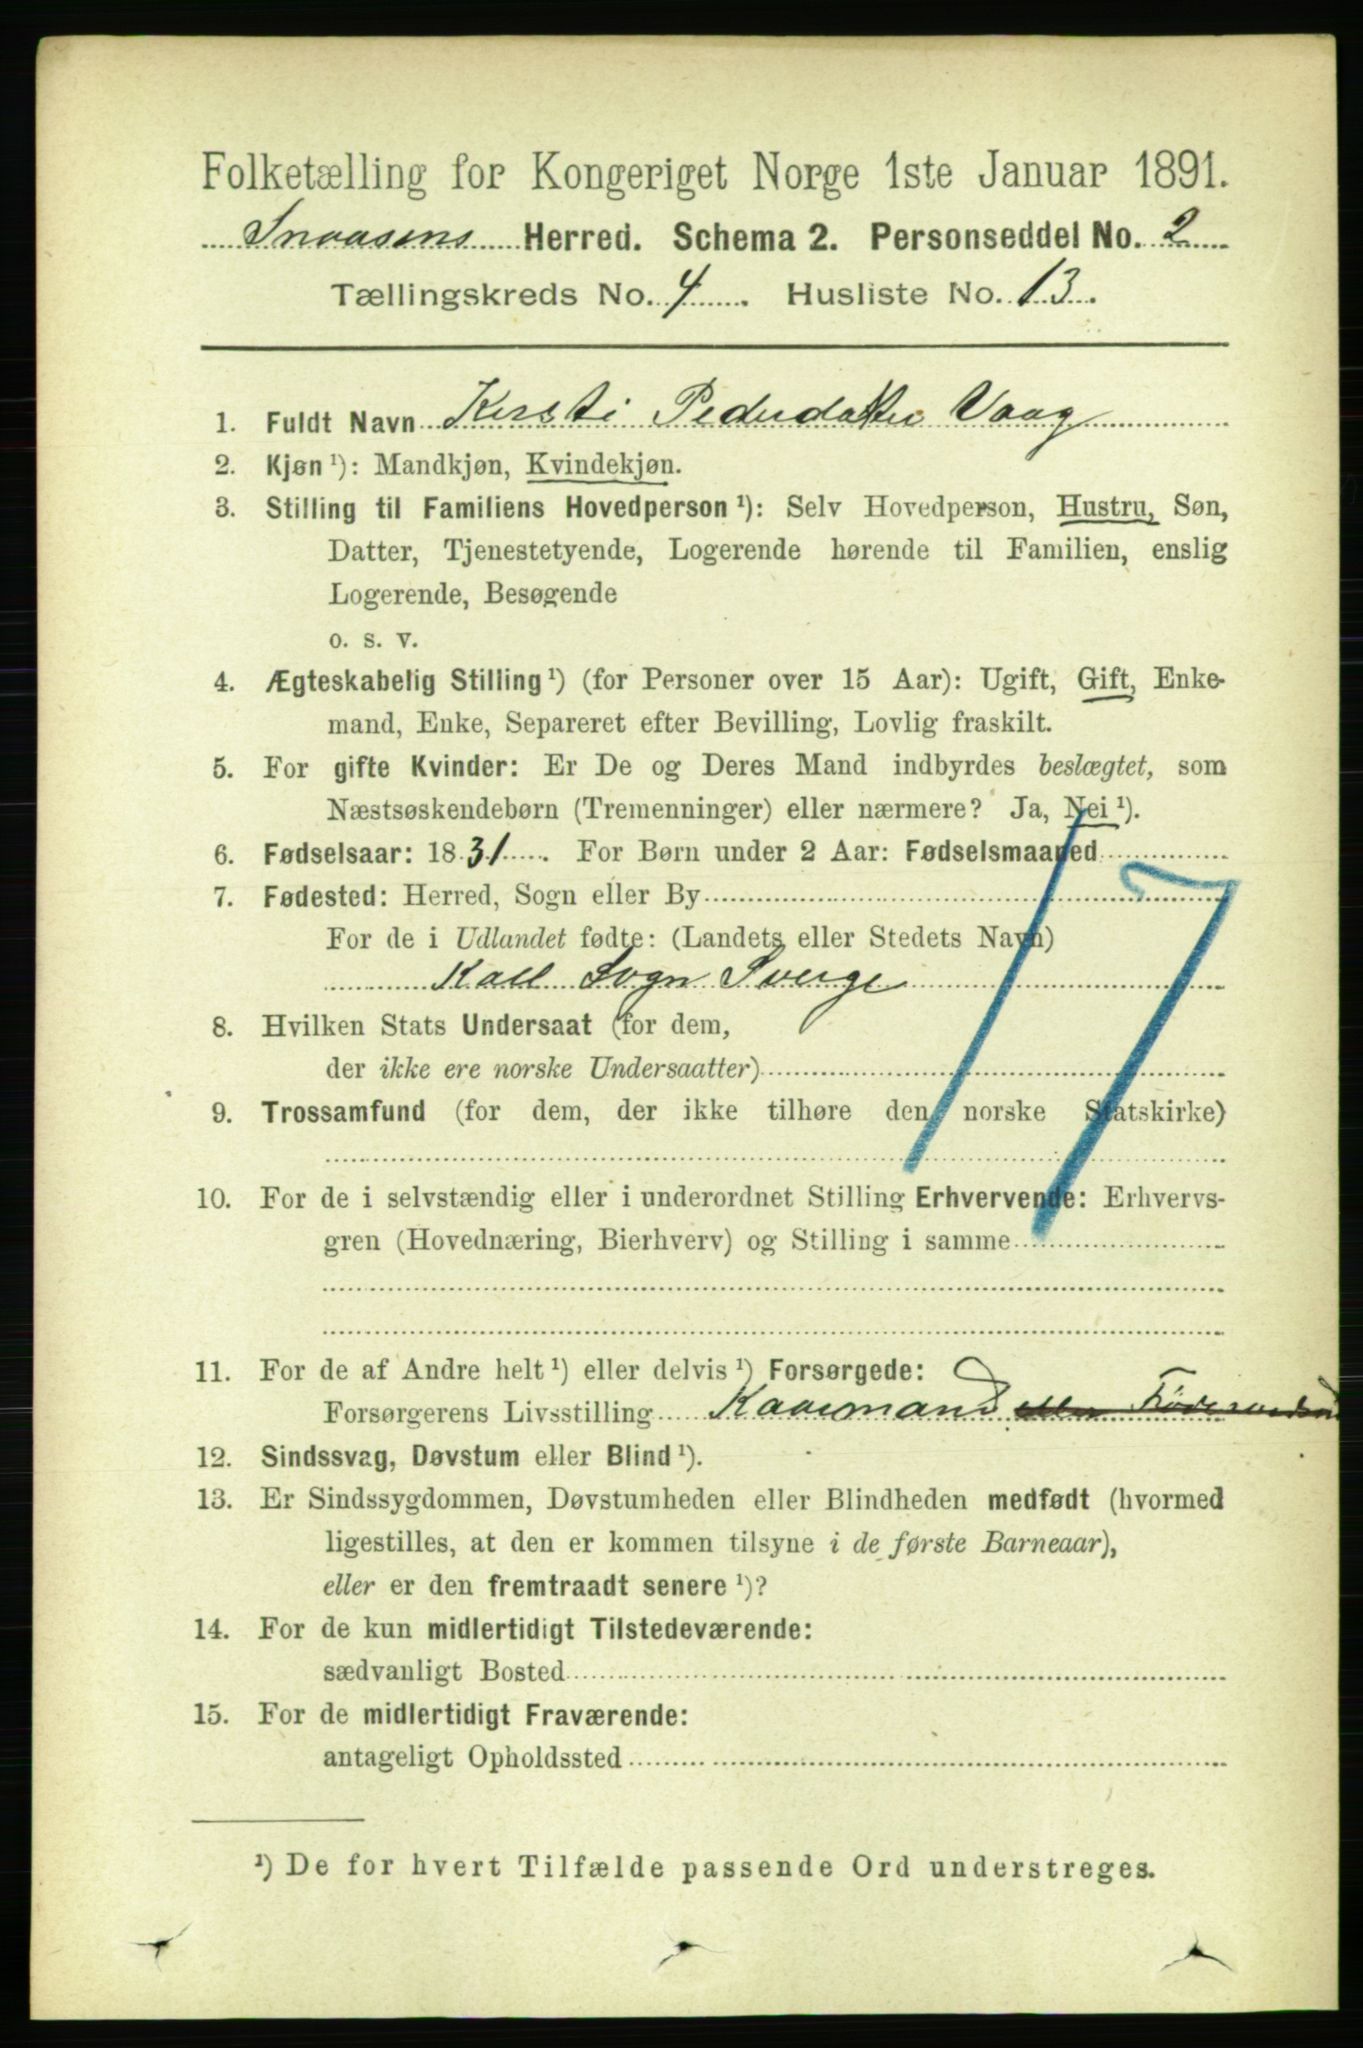 Folketælling for Kongeriget Norge 1ste Januar 1891.
Snaasens Herred. Schema 2. Personseddel No. 2
Tællingskreds No. 4. Husliste No. 13.
1. Fuldt Navn Kersti Pedersdatter Vaag
2. Kjøn ¹): Mandkjøn, Kvindekjøn.
3. Stilling til Familiens Hovedperson ¹): Selv Hovedperson, Hustru, Søn,
Datter, Tjenestetyende, Logerende hørende til Familien, enslig
Logerende, Besøgende
o. s. v.
4. Ægteskabelig Stilling ¹) (for Personer over 15 Aar): Ugift, Gift, Enke-
mand, Enke, Separeret efter Bevilling, Lovlig fraskilt.
5. For gifte Kvinder: Er De og Deres Mand indbyrdes beslægtet, som
Næstsøskendebørn (Tremenninger) eller nærmere? Ja, Nei ¹).
6. Fødselsaar: 1831. For Børn under 2 Aar: Fødselsmaaned
7. Fødested: Herred, Sogn eller By
For de i Udlandet fødte: (Landets eller Stedets Navn)
Kall Sogn Sverge
17
8. Hvilken Stats Undersaat (for dem,
der ikke ere norske Undersaatter)
9. Trossamfund (for dem, der ikke tilhøre den norske Statskirke)
10. For de i selvstændig eller i underordnet Stilling Erhvervende: Erhvervs-
gren (Hovednæring, Bierhverv) og Stilling i samme
11. For de af Andre helt ¹) eller delvis ¹) Forsørgede:
Forsørgerens Livsstilling Kaarmand eller
12. Sindssvag, Døvstum eller Blind ¹).
13. Er Sindssygdommen, Døvstumheden eller Blindheden medfødt (hvormed
ligestilles, at den er kommen tilsyne i de første Barneaar),
eller er den fremtraadt senere ¹)?
14. For de kun midlertidigt Tilstedeværende:
sædvanligt Bosted
15. For de midlertidigt Fraværende:
antageligt Opholdssted
¹) De for hvert Tilfælde passende Ord understreges.